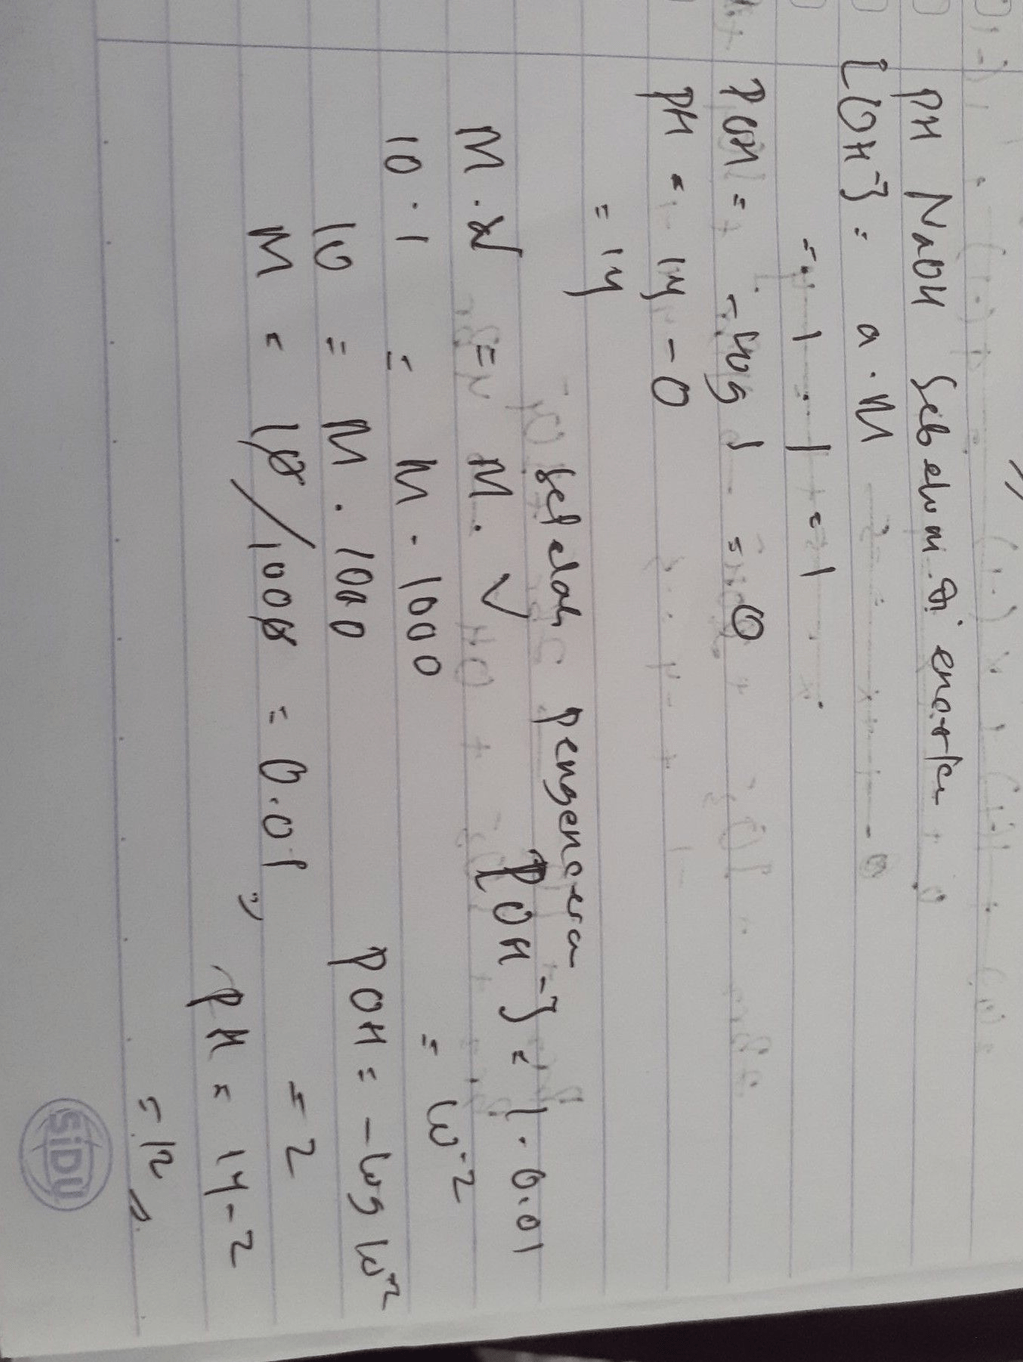 PH NaOH sebelum di encerkan
[OH-] = a . M
= 1 . 1 = 1
POH = -log 1 = 0
PH = 14 - 0
= 14
setelah pengenceran
M . V = M . V
10 . 1 = M . 1000
10 = M . 1000
M = 10/1000 = 0.01 //
[OH-] = 1 . 0.01
= 10-2
POH = -log 10-2
= 2
PH = 14 - 2
= 12 //
SiDU